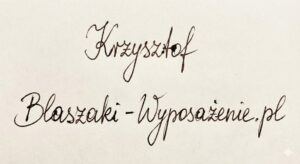 Krzysztof
Blaszaki-Wyposażenie.pl